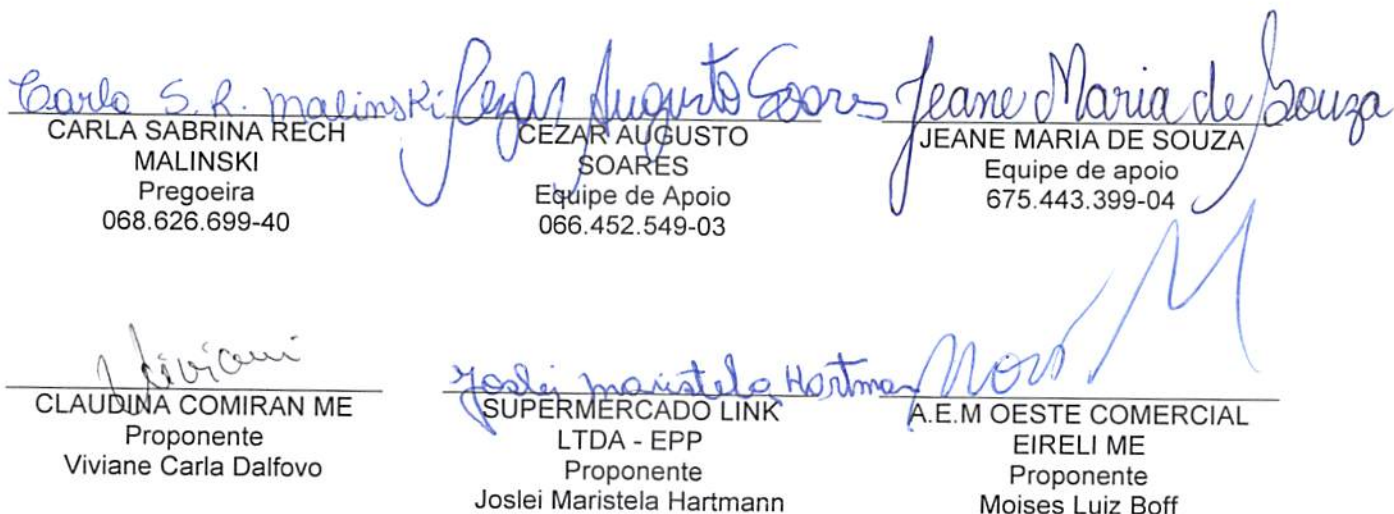 Carla S. R. Malinski
CARLA SABRINA RECH
MALINSKI
Pregoeira
068.626.699-40
Cezar Augusto Soares
CEZAR AUGUSTO
SOARES
Equipe de Apoio
066.452.549-03
Jeane Maria de Souza
JEANE MARIA DE SOUZA
Equipe de apoio
675.443.399-04
Viviani
CLAUDINA COMIRAN ME
Proponente
Viviane Carla Dalfovo
Joslei Maristela Hartman
SUPERMERCADO LINK
LTDA - EPP
Proponente
Joslei Maristela Hartmann
A.E.M OESTE COMERCIAL
EIRELI ME
Proponente
Moises Luiz Boff